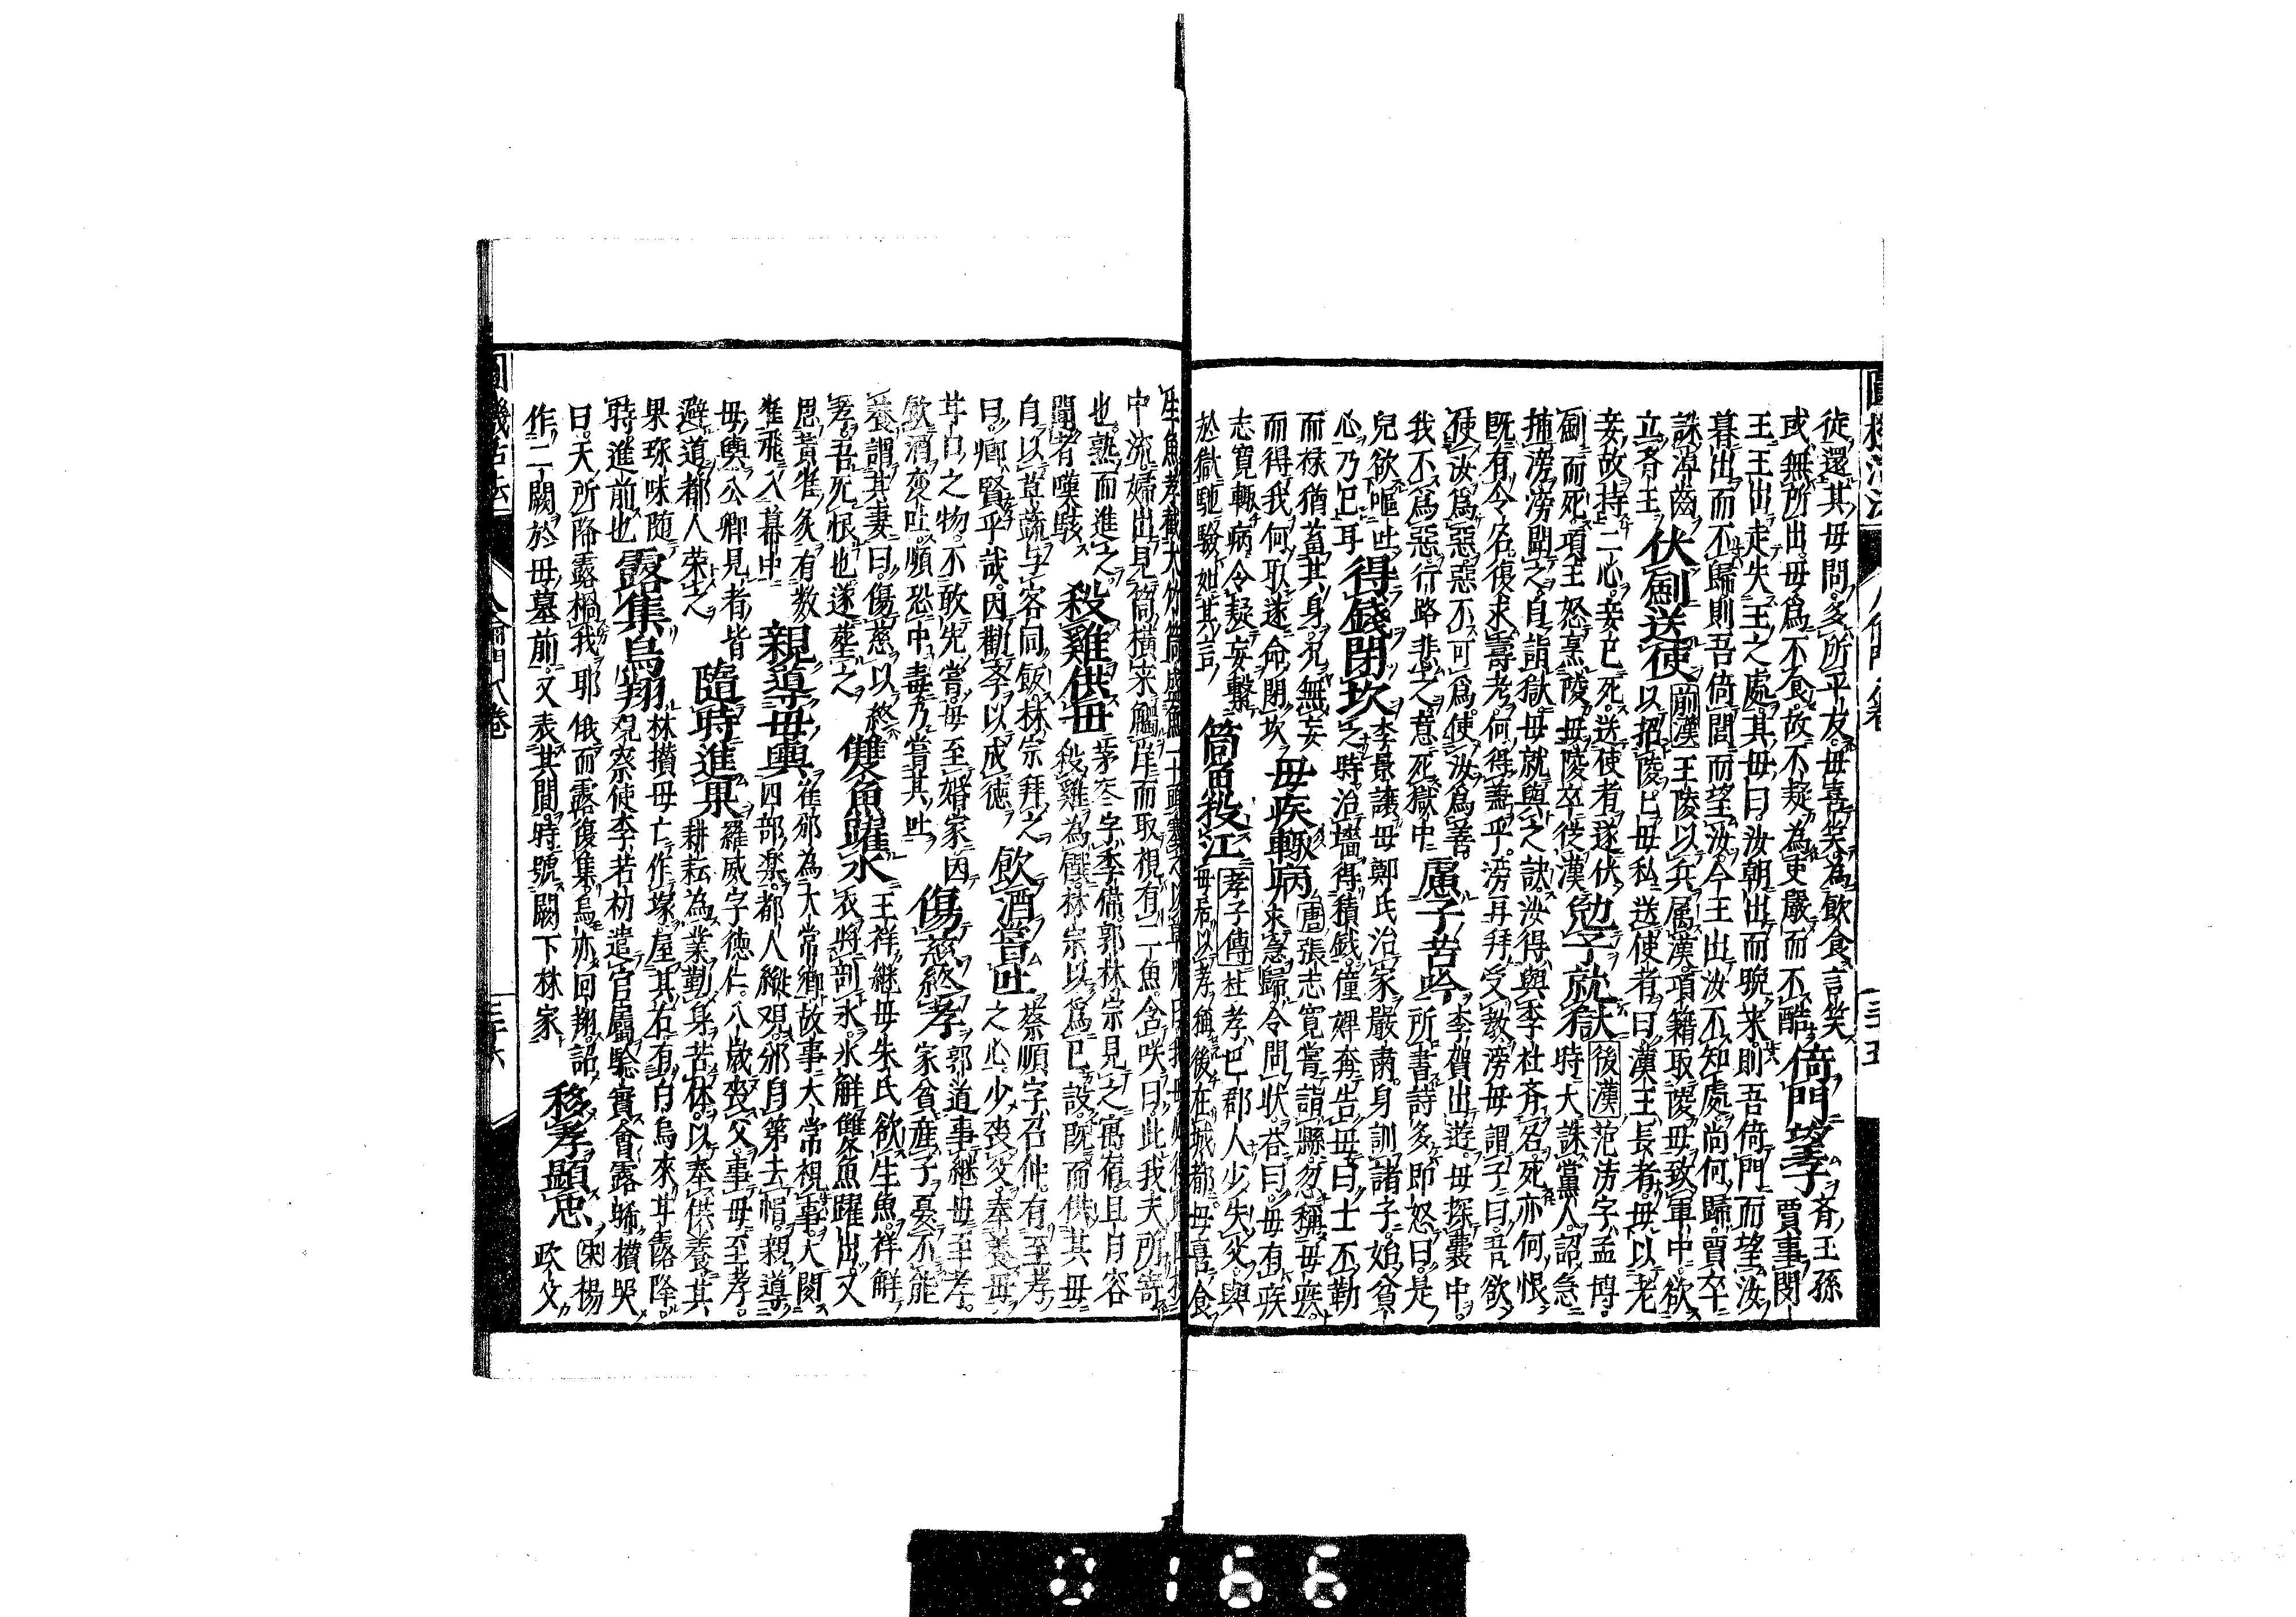 徒還其母問多所平反母喜笑為飲食言笑
或無所出母爲不食故不疑為吏嚴而不酷 倚門望 斉王孫賈事閔
王王出走失王之處其母曰汝朝出而晩来則吾倚門而望汝
暮出而不歸則吾倚閭而望汝今王出汝不知處尚何歸賈卒
誅淖齒 伏劍送使 前漢王陵以兵属漢項籍取陵母致軍中欲
立斉王 以招陵巳母私送使者曰漢王長者毋以老
妾故持二心妾已死送使者遂伏
劍而死項王怒烹陵母陵卒従漢 勉子就獄 後漢范滂字孟博
時大誅黨人詔急
捕滂滂聞之自詣獄母就與之訣汝得與李杜斉名死亦何恨
既有令名復求壽考何得兼乎滂再拜受教滂母謂子曰吾欲
使汝爲惡惡不可爲使汝爲善 慮子苦吟 李賀出遊母探囊中
我不爲惡行路悲之意死獄中 所書詩多即怒曰是
兒欲嘔吐
心乃已耳 得錢閉坎 李景讓母鄭氏治家嚴肅身訓諸子始貧
乏時治墻得積錢僮婢奔告母曰士不勤
而禄猶菑其身況無妄
而得我何取遂命閉坎 母疾輙病 唐張志寛嘗詣縣忽稱母疾
求急歸令問状荅曰母有疾
志寛輙病令疑妄繫
於獄馳驗如其言 筒魚投江 孝子傳杜孝巴郡人少失父與
母居以孝稱後在城都母喜食
中流婦出見筒横来觸岸而取視有二魚含咲曰此我夫所寄
也熟而進之
聞者嘆駭 殺雞供母 茅容字季偉郭林宗見之寓宿且日容
殺雞為饌林宗以為已設既而供其母
自以草蔬与客同飯林宗拜之
曰卿賢乎哉因勸学以成徳 飲酒嘗吐 蔡順字召仲有至孝
之心少喪父奉養母
甘口之物不敢先嘗母至婚家因
飲酒変吐順恐中毒乃嘗其吐 傷慈終孝 郭道事継母至孝
家貧産子憂不能
養謂其妻曰傷慈以終
孝吾死恨也遂葬之 雙魚躍氷 王祥継母朱氏欲生魚祥解
衣將剖氷氷解雙魚躍出又
思黄雀炙有数
雀飛入幕中 親導母輿 崔邠為太常卿故事大常視事大閲
四部楽都人縦観邠自第去帽親導
母輿公卿見者皆
避道都人栄之 隨時進果 羅威字徳仁八歳喪父事母至孝
耕耘為業勤身苦体以奉供養其
果珎味随
時進前也 露集烏翔 林攢母亡作塚屋其右有白烏來甘露降
観察使李若初遣官屬驗實會露晞攢哭
曰天所降露禍我耶俄而露復集烏亦回翔詔
作二闕於母墓前又表其閭時號闕下林家 移孝顕忠 宋楊
政父